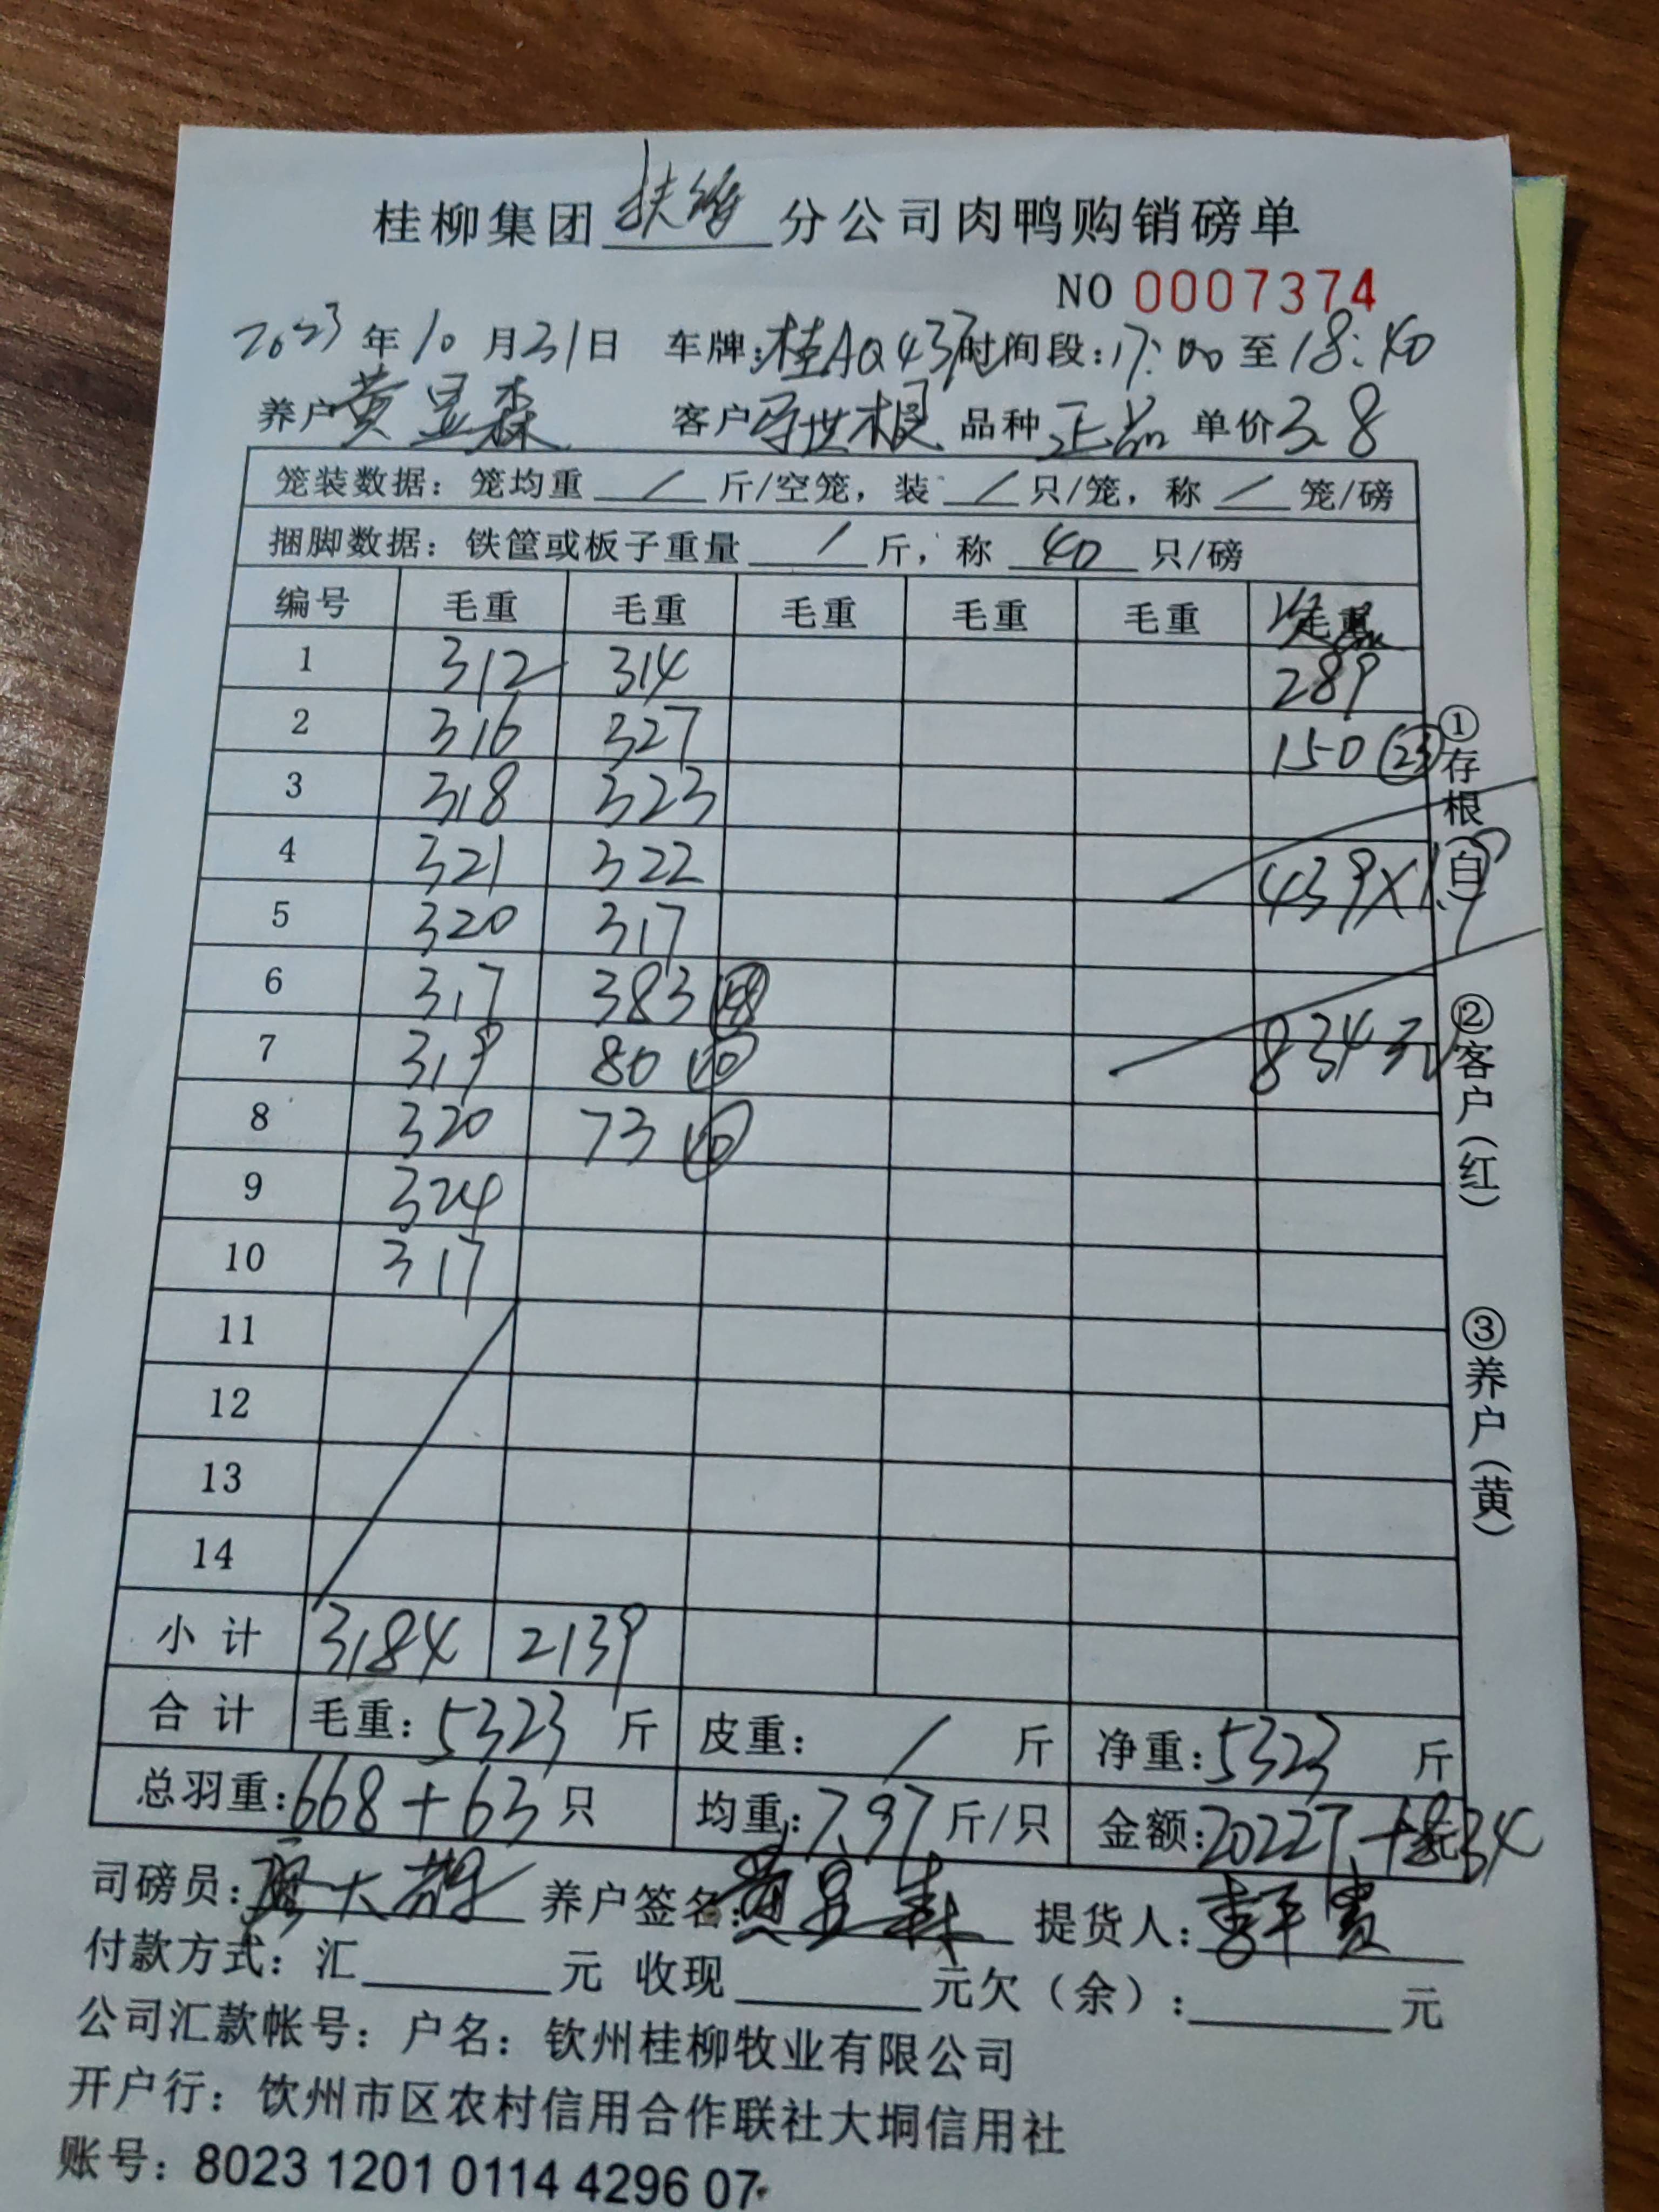 桂柳集团扶绥分公司肉鸭购销磅单
NO 0007374
2023年10月31日 车牌:桂AQ43 时间段:17:00至18:40
养户黄显森 客户 世根 品种正品 单价3.8
笼装数据:笼均重 / 斤/空笼,装 / 只/笼,称 / 笼/磅
捆脚数据:铁筐或板子重量 / 斤,称 40 只/磅
编号 毛重 毛重 毛重 毛重 毛重 毛重
1 312 314 289
2 316 327 150 (23)
3 318 323
4 321 322 439×1.9
5 320 317
6 317 383 (48)
7 319 80 (10) 834元
8 320 73 (10)
9 324
10 317
11
12
13
14
小计 3184 2139
合计 毛重:5323 斤 皮重: / 斤 净重:5323 斤
总羽重:668+63只 均重:7.97斤/只 金额:20227.+834
司磅员: 大 养户签名:黄显森 提货人:李平贵
付款方式:汇 元 收现 元欠(余): 元
公司汇款帐号:户名:钦州桂柳牧业有限公司
开户行:饮州市区农村信用合作联社大垌信用社
账号:8023 1201 0114 4296 07
①存根(白)
②客户(红)
③养户(黄)